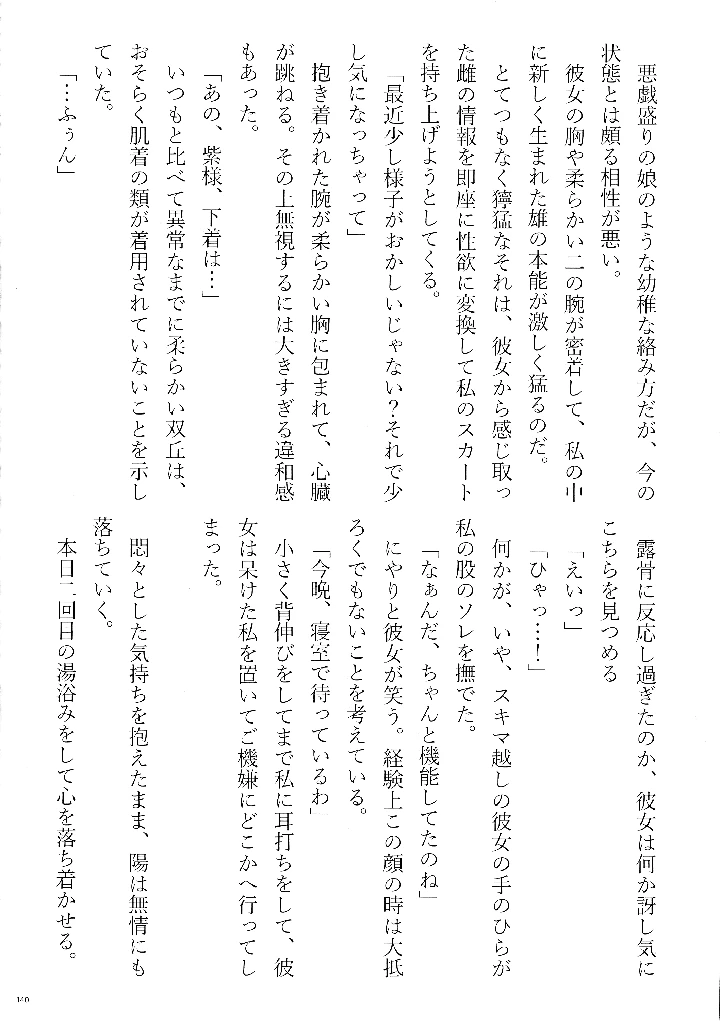 悪戯盛りの娘のような幼稚な絡み方だが、今の
状態とは頗る相性が悪い。
彼女の胸や柔らかい二の腕が密着して、私の中
に新しく生まれた雄の本能が激しく猛るのだ。
とてつもなく獰猛なそれは、彼女から感じ取っ
た雌の情報を即座に性欲に変換して私のスカート
を持ち上げようとしてくる。
「最近少し様子がおかしいじゃない?それで少
し気になっちゃって」
抱き着かれた腕が柔らかい胸に包まれて、心臓
が跳ねる。その上無視するには大きすぎる違和感
もあった。
「あの、紫様、下着は…」
いつもと比べて異常なまでに柔らかい双丘は、
おそらく肌着の類が着用されていないことを示し
ていた。
「…ふぅん」
露骨に反応し過ぎたのか、彼女は何か訝し気に
こちらを見つめる
「えいっ」
「ひゃっ…!」
何かが、いや、スキマ越しの彼女の手のひらが
私の股のソレを撫でた。
「なぁんだ、ちゃんと機能してたのね」
にやりと彼女が笑う。経験上この顔の時は大抵
ろくでもないことを考えている。
「今晩、寝室で待っているわ」
小さく背伸びをしてまで私に耳打ちをして、彼
女は呆けた私を置いてご機嫌にどこかへ行ってし
まった。
悶々とした気持ちを抱えたまま、陽は無情にも
落ちていく。
本日二回目の湯浴みをして心を落ち着かせる。
140